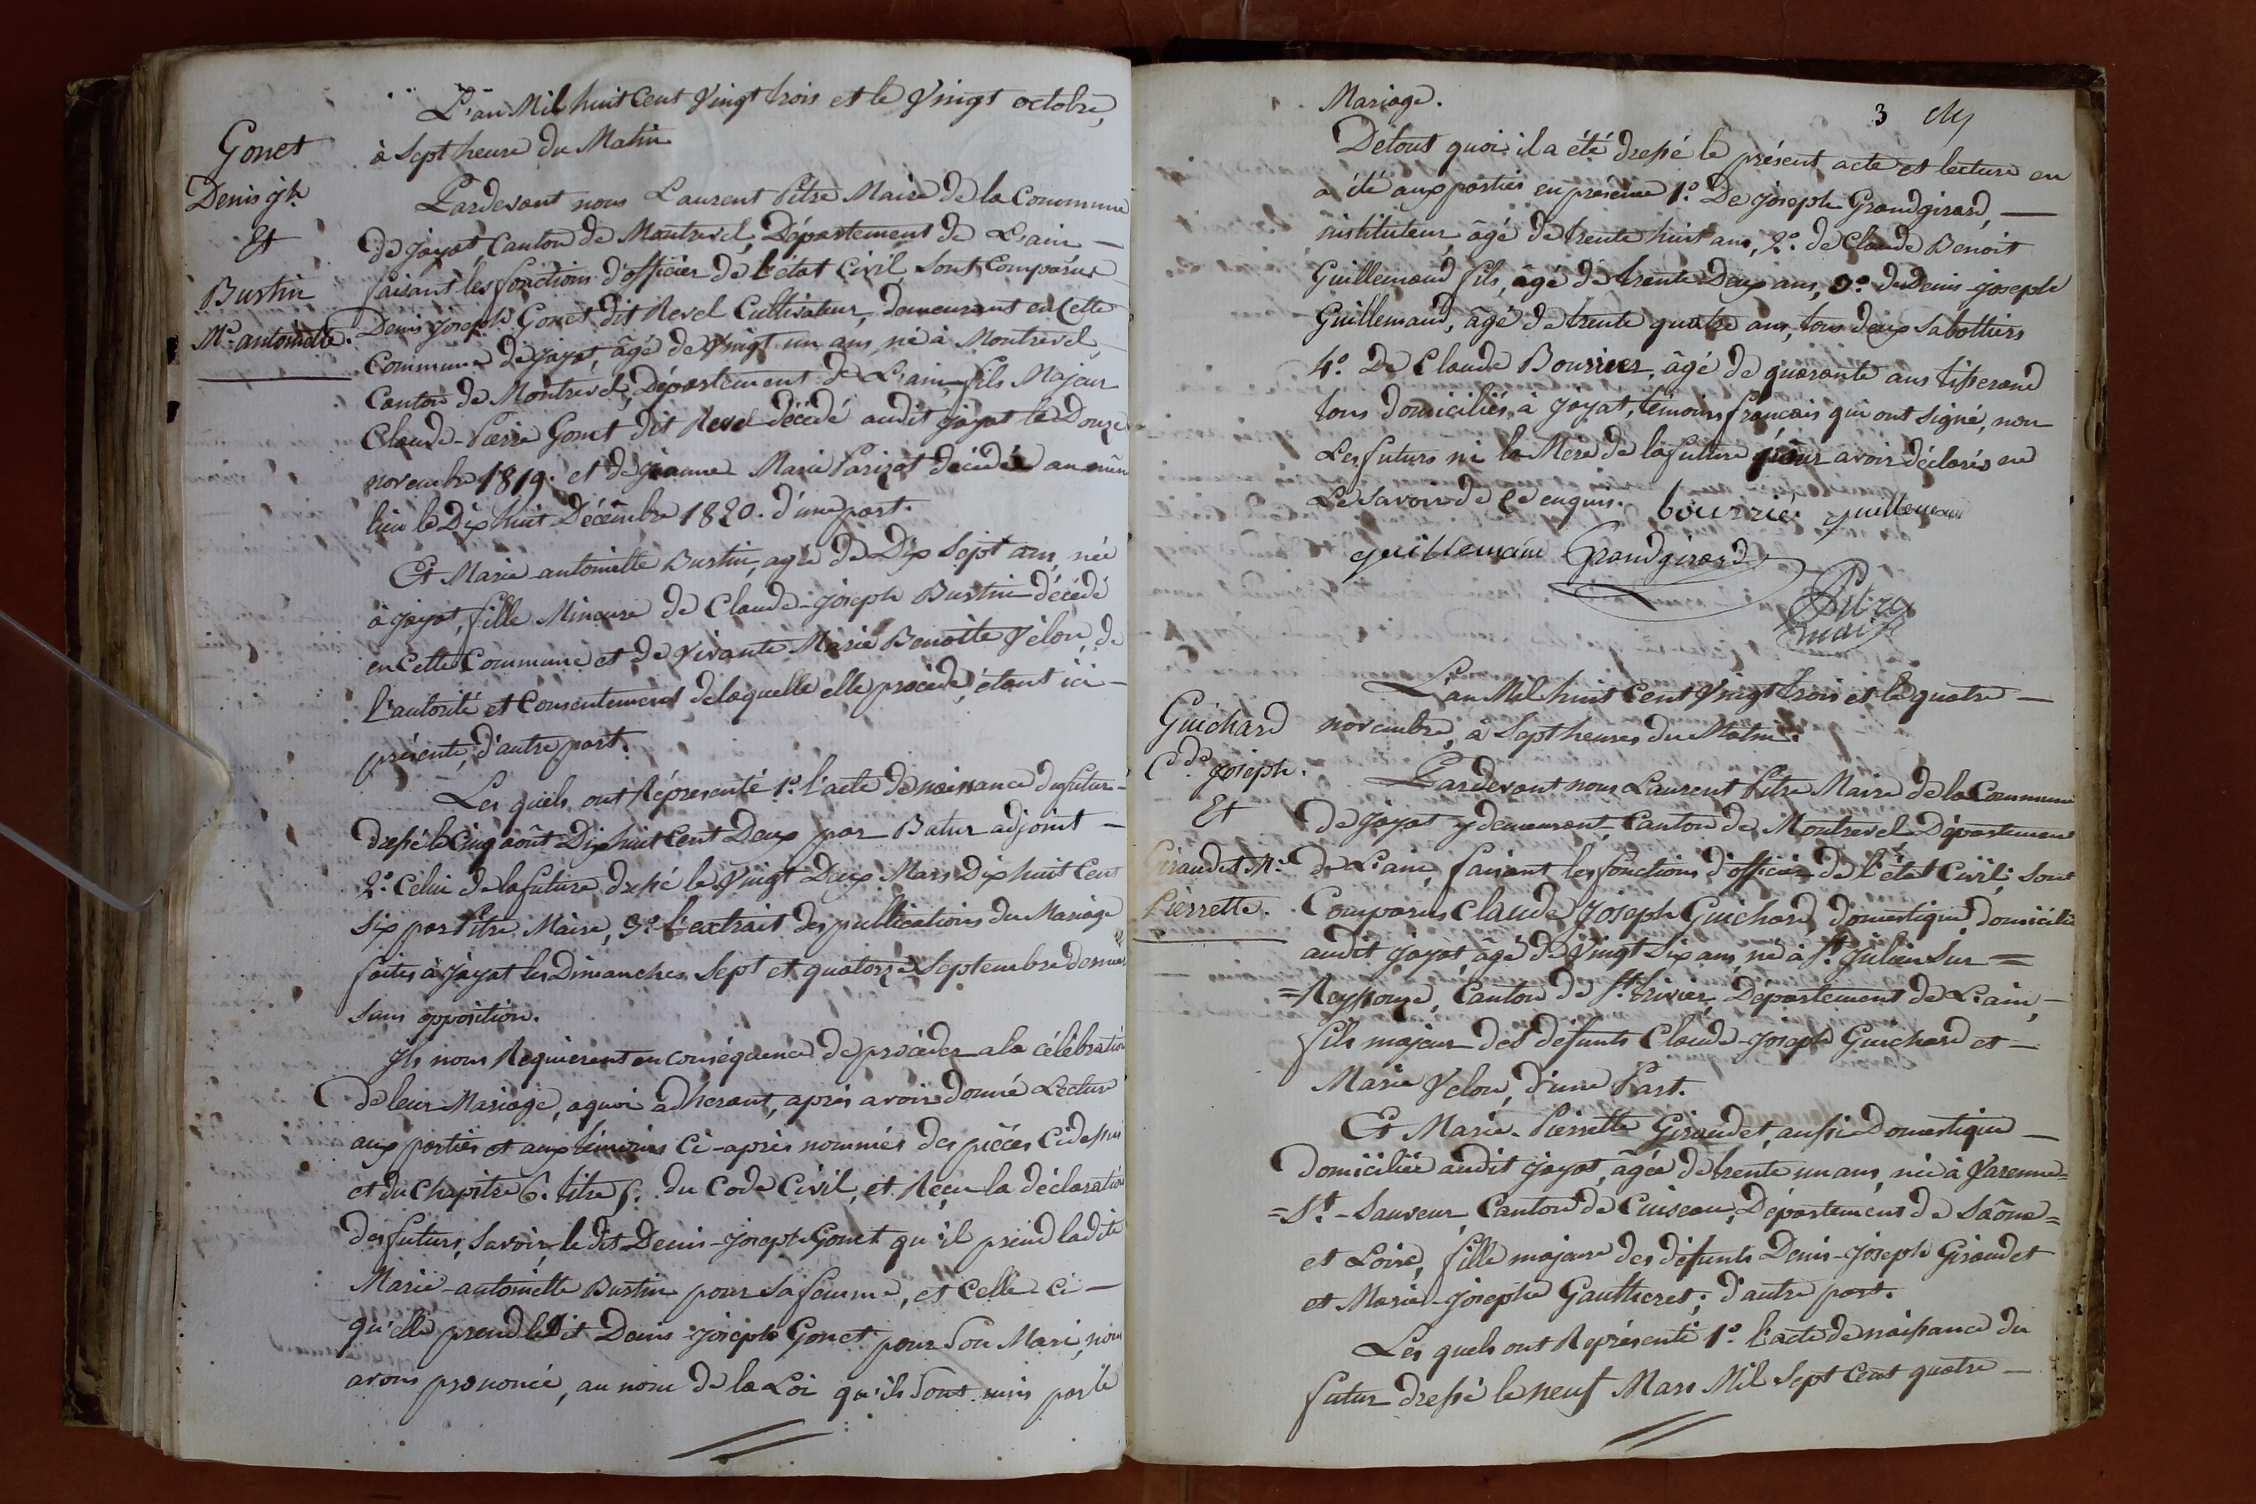 L'an Mil huit Cent Vingt trois et le Vingt octobre,
à Sept heure du Matin
Gonet
Denis jh.
Et
Bustin
Me. antoinette.
Pardevant nous Laurent Pitre Maire de la Commune
de Jayat, Canton de Montrevel, Département de L'ain —
faisant les fonctions d'officier de l'état Civil, sont Comparus
Denis Joseph Gonet dit Revel Cultivateur, demeurant en Cette
Commune de Jayat, âgé de Vingt un ans, né à Montrevel,
Canton de Montrevel, Département de L'ain, fils Majeur
Claude-Pierre Gonet dit Revel décédé audit Jayat le Douze
novembre 1819. et de Jeanne Marie Parizot décédée au même
lieu le Dix huit Décembre 1820. d'une part.
Et Marie antoinette Bustin, agée de Dix Sept ans, née
à Jayat, fille Mineure de Claude-Joseph Bustin décédé
en Cette Commune et de Vivante Marie Benoite Vélon, de
l'autorité et Consentement de laquelle elle procède, étant ici —
présente, d'autre part.
Les quels ont Réprésenté 1.° l'acte de naissance du futur —
dressé le Cinq août Dix huit Cent Deux par Batur adjoint —
2.° Celui de la future dressé le Vingt Deux Mars Dix huit Cent
Six par Pitre Maire, 3.° L'extrait des publications du Mariage
faites à Jayat les Dimanches Sept et quatorze Septembre dernier
sans opposition.
Ils nous Requierent en conséquence de procéder a la célébration
de leur Mariage, aquoi adherant, après avoir donné Lecture
aux parties et aux témoins Ci-après nommés des pièces Cidessus
et du Chapitre 6. titre 5. du Code Civil, et Reçu la déclaration
des futurs, Savoir, le dit Denis-Joseph Gonet qu'il prend ladite
Marie-antoinette Bustin pour Sa femme, et Celle-Ci —
qu'elle prend ledit Denis Joseph Gonet pour Son Mari, nous
avons prononcé, au nom de la Loi qu'ils Sont unis par le
Mariage.
3
Detout quoi il a été dressé le présent acte et lecture en
a été aux parties en présence 1.° De Joseph Grandgirard, —
instituteur, âgé de trente huit ans, 2.° de Claude Benoit
Guillemaud fils, âgé de trente Deux ans, 3.° de Denis-Joseph
Guillemaud, âgé de trente quatre ans, tous deux Sabottiers
4.° De Claude Bourrier, âgé de quarante ans tisserand
tous domiciliés à Jayat, témoins français qui ont signé, non
Les futurs ni la Mère de la future pour avoir déclarés ne
Le Savoir de Ce enquis. bourrié. guillemaud
guillemaud Grandgirard
Pitre
maire
L'an Mil huit Cent Vingt trois et le quatre —
novembre, à Sept heures du Matin.
Guichard
Cde. Joseph.
Et
Giraudet Me.
Pierrette.
Pardevant nous Laurent Pitre Maire de la Commune
de Jayat y demeurant, Canton de Montrevel, Département
de L'ain, faisant les fonctions d'officier de l'état Civil; Sont
Comparus Claude Joseph Guichard, domestique, domicilié
audit Jayat, âgé de Vingt Six ans, né à St. Julien Sur =
= Reyssouze, Canton de St. trivier, Departement de L'ain, —
fils majeur des defunts Claude-Joseph Guichard et —
Marie Velon, d'une Part.
Et Marie-Pierrette Giraudet, aussi Domestique —
Domiciliée audit Jayat, âgée de trente un ans, née à Varenne=
=St.-Sauveur, Canton de Cuiseau, Département de Saône=
et Loire, fille majeure des défunts Denis-Joseph Giraudet
et Marie-Josephe Gauthieret; d'autre part.
Les quels ont Représenté 1.° l'acte de naissance du
futur dressé le neuf Mars Mil Sept Cent quatre —